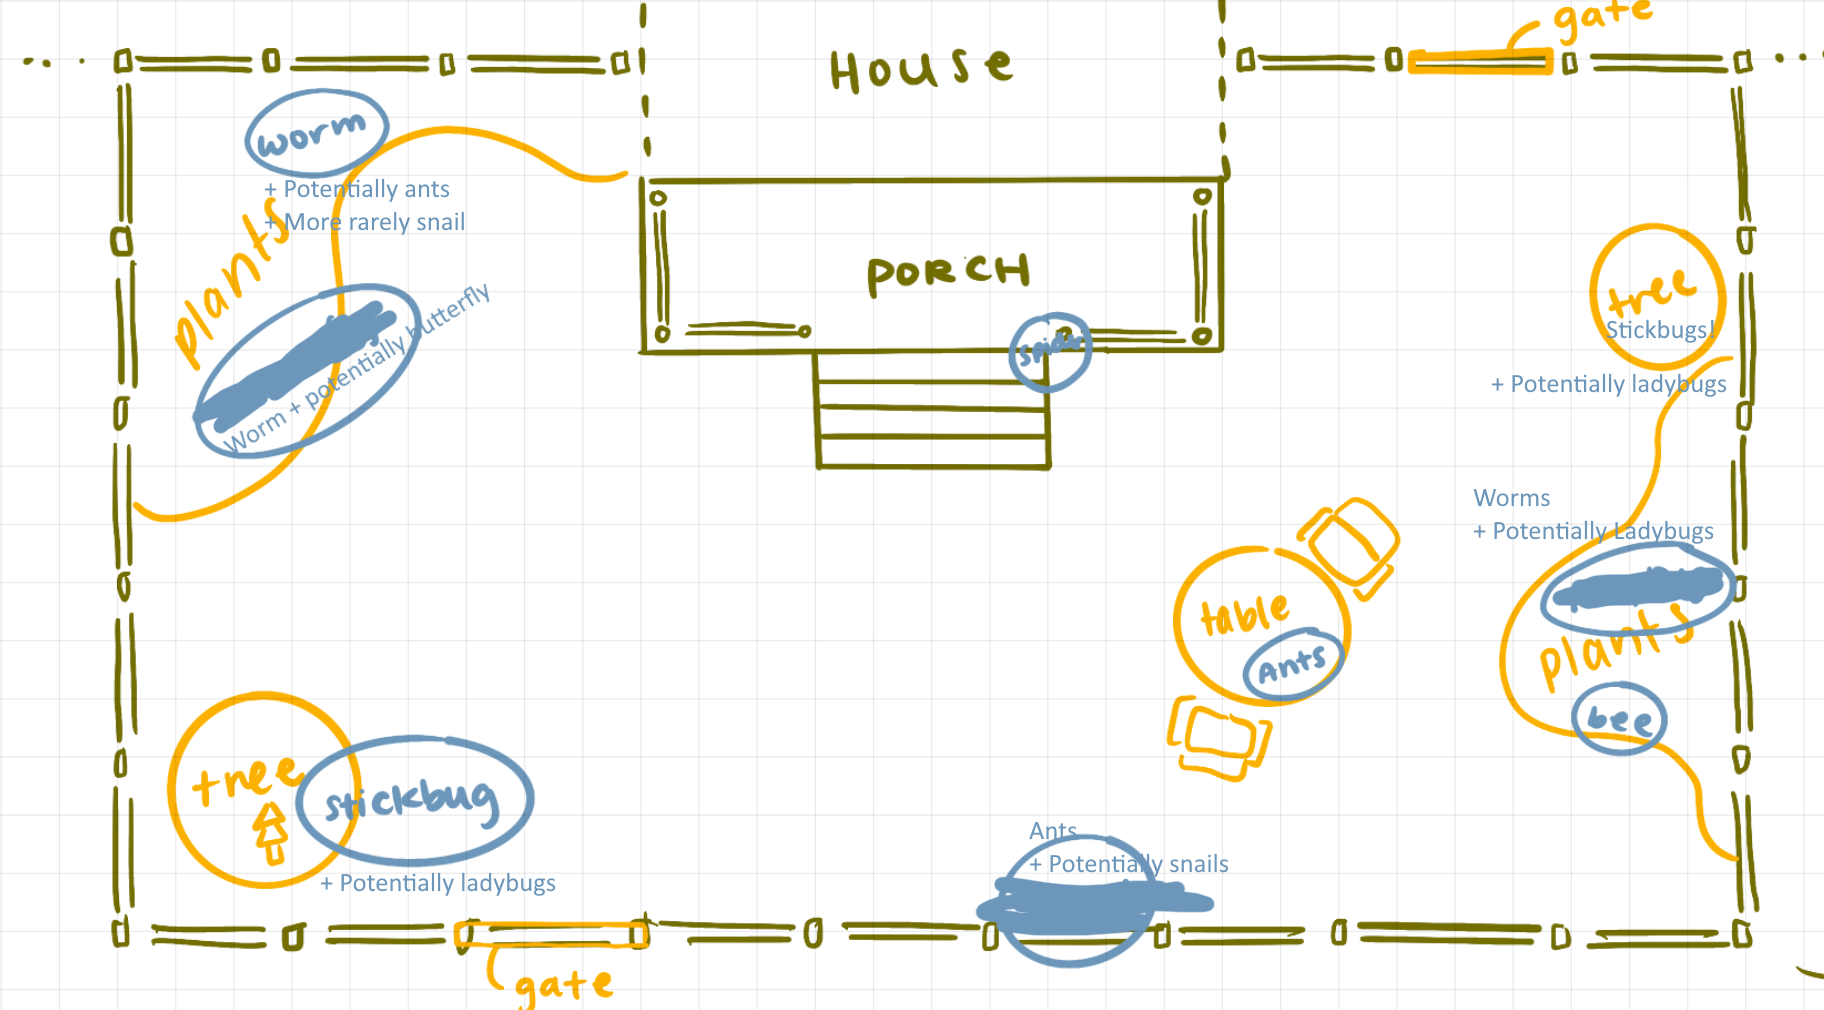 gate
HOUSE
worm
+ Potentially ants
+ More rarely snail
plants
Worm + potentially butterfly
PORCH
spider
tree
Stickbugs!
+ Potentially ladybugs
Worms
+ Potentially Ladybugs
plants
bee
table
Ants
tree
stickbug
+ Potentially ladybugs
Ants
+ Potentially snails
gate